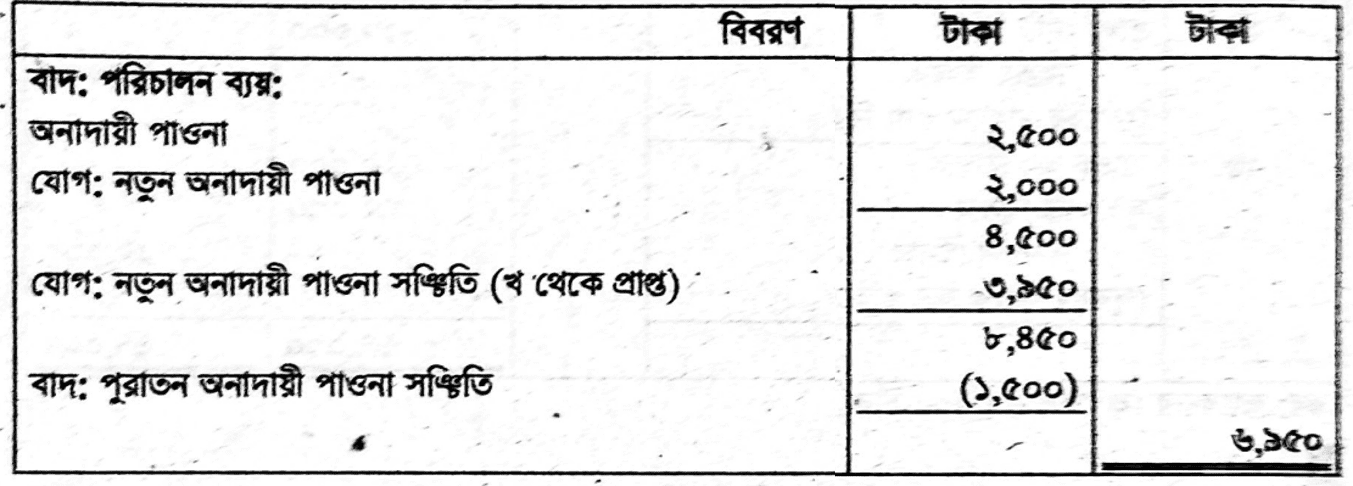 বিবরণ টাকা টাকা
বাদ: পরিচালন ব্যয়:
অনাদায়ী পাওনা ২,৫০০
যোগ: নতুন অনাদায়ী পাওনা ২,০০০
৪,৫০০
যোগ: নতুন অনাদায়ী পাওনা সঞ্চিতি (খ থেকে প্রাপ্ত) ৩,৯৫০
৮,৪৫০
বাদ: পুরাতন অনাদায়ী পাওনা সঞ্চিতি (১,৫০০)
৬,৯৫০